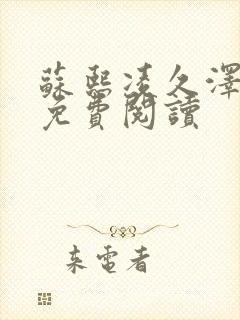 蘇熙凌久澤
免費閱讀
来電者